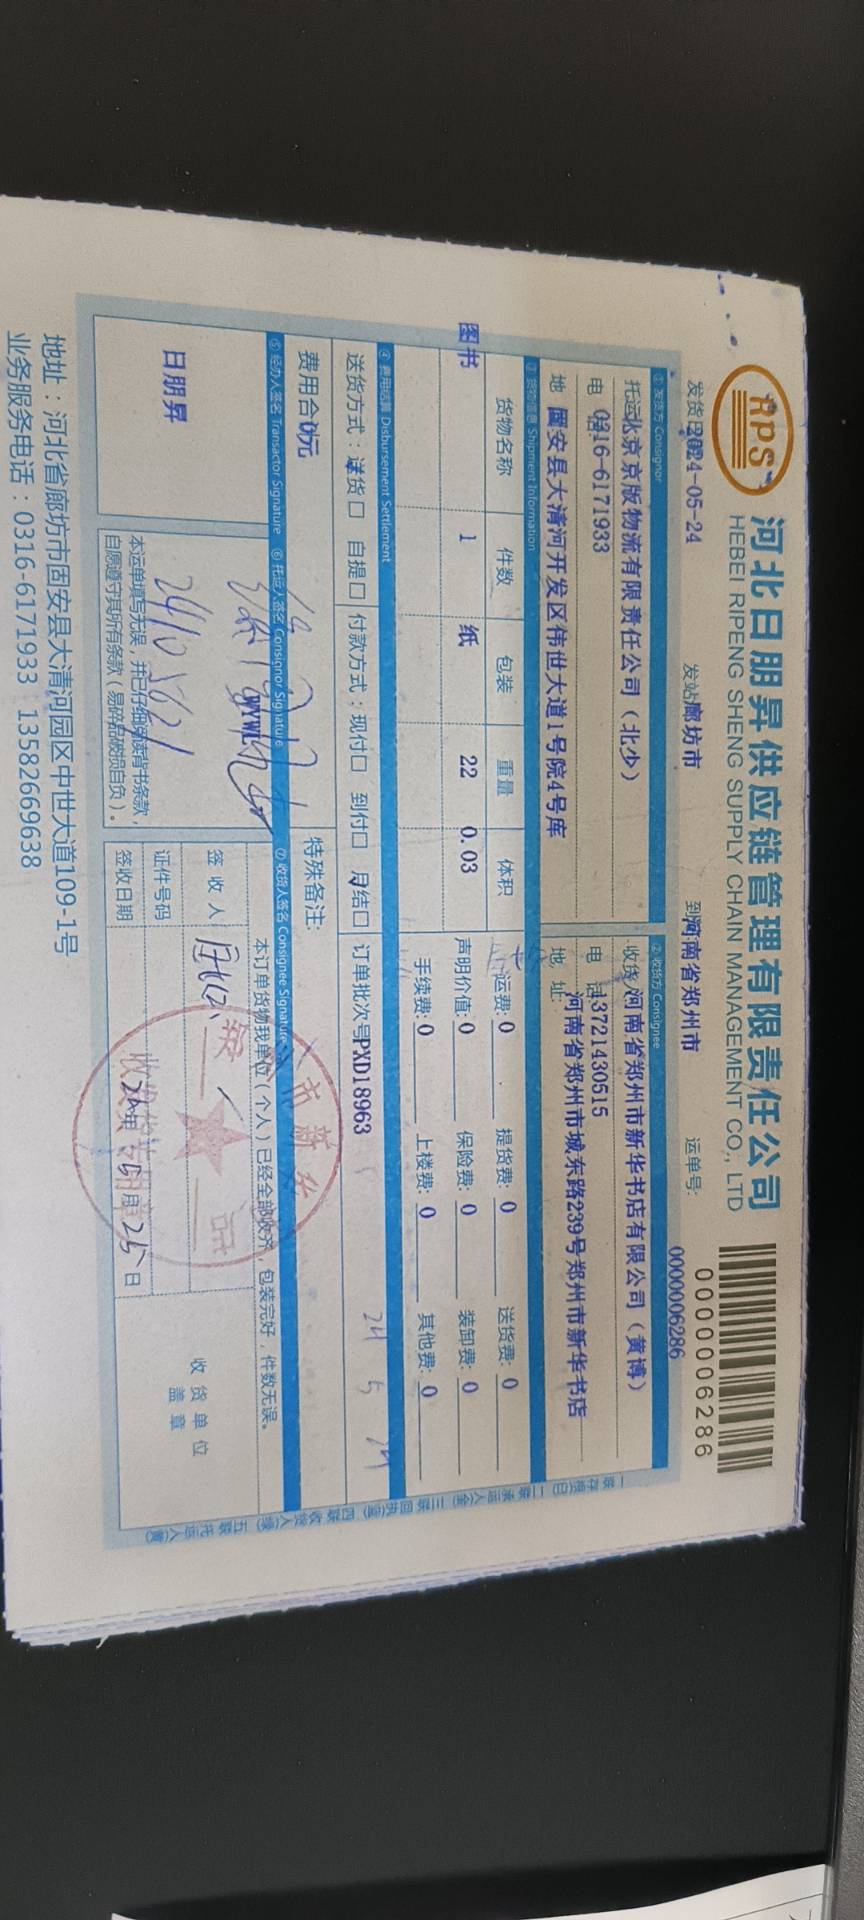 RPS
河北日朋昇供应链管理有限责任公司
HEBEI RIPENG SHENG SUPPLY CHAIN MANAGEMENT CO., LTD
0000006286
发货日 2024-05-24 发站 廊坊市 到 河南省郑州市 运单号: 0000006286
① 发货方 Consignor ② 收货方 Consignee
托运 北京京版物流有限责任公司（北少） 收货 河南省郑州市新华书店有限公司（黄博）
电 0316-6171933 电 话 13721430515
地 固安县大清河开发区伟世大道1号院4号库 地 址: 河南省郑州市城东路239号郑州市新华书店
③ 货物信息 Shipment Information
货物名称 件数 包装 重量 体积 运费: 0 提货费: 0 送货费: 0
图书 1 纸 22 0.03 声明价值: 0 保险费: 0 装卸费: 0
手续费: 0 上楼费: 0 其他费: 0
④ 费用结算 Disbursement Settlement
送货方式：送货口 自提口 付款方式：现付口 到付口 月结口 订单批次号 PXD18963
24 5 24
费用合 0元 特殊备注:
⑤ 经办人签名 Transactor Signature ⑥ 托运人签名 Consignor Signature ⑦ 收货人签名 Consignee Signature
本订单货物我单位（个人）已经全部收齐，包装完好，件数无误。
日朋昇
签 收 人
收 货 单 位
盖 章
证件号码
本运单填写无误，并已仔细阅读背书条款，
自愿遵守其所有条款（易碎品破损自负）。
签收日期 24年 5月 25日
市新华
收发货专用章
一联存根(白) 二联承运人(金) 三联回执(蓝) 四联收货人(绿) 五联托运人(黄)
地址：河北省廊坊市固安县大清河园区中世大道109-1号
业务服务电话：0316-6171933 13582669638